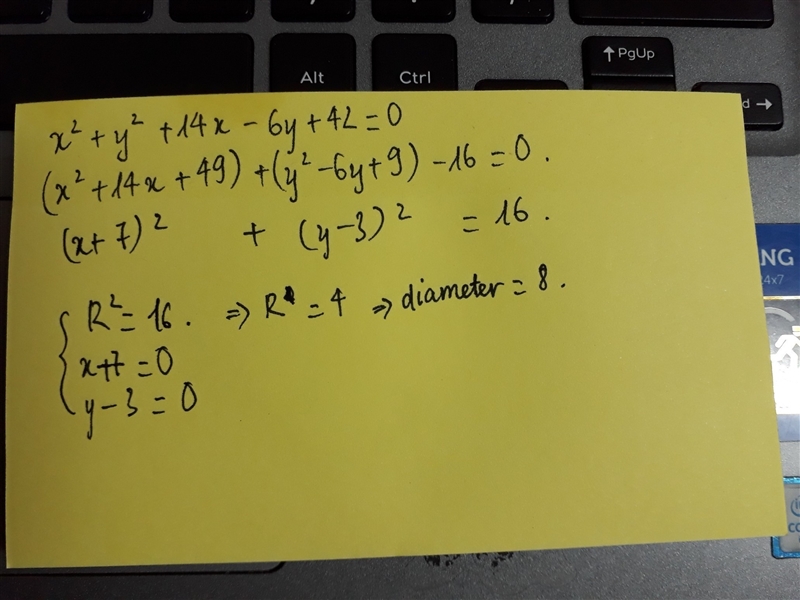 Alt
Ctrl
↑ PgUp
d →
x² + y² + 14x - 6y + 42 = 0
(x² + 14x + 49) + (y² - 6y + 9) - 16 = 0.
(x + 7)² + (y - 3)² = 16.
R² = 16. => R = 4 => diameter = 8.
x + 7 = 0
y - 3 = 0
NG
24x7